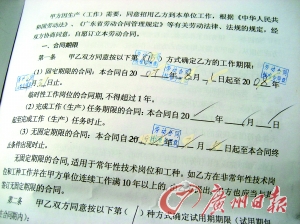 甲方因生产(工作)需要,同意招用乙方到本单位工作,根据《中华人民共
和国劳动法》、《广东省劳动合同管理规定》等有关劳动法律、法规的规定,经
双方协商同意,自愿订立本劳动合同。
一、合同期限
第一条 甲乙双方同意按以下第( )方式确定乙方的工作期限:
(1)固定期限的合同:本合同自20 年 月 日起至20 年
月 日止。
临时性工作岗位的合同期,不得超过1年。
(2)完成工作(生产)任务期限的合同:本合同自20 年 月 日
起至完成工作(生产)任务时止。
(3)无固定期限的合同:本合同自20 年 月 日起至本合同终
止条件出现时止。
无固定期限的合同,适用于常年性技术岗位和工种,如乙方在非常年性技术岗
位和工种工作并在甲方单位连续工作满10年以上的
签订无固定期限的合同。
第二条 甲乙双方同意按以下第( )种方式确定试用期期限(试用期
广州日报